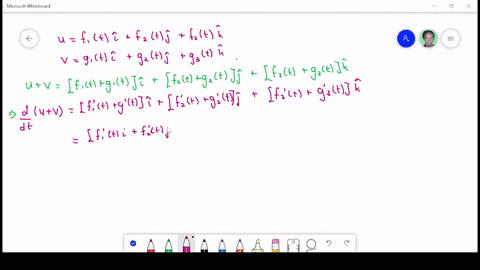 Microsoft Whiteboard
u = f₁(t) î + f₂(t) ĵ + f₂(t) k̂
v = g₁(t) î + g₂(t) ĵ + g₃(t) k̂
u+v = [f₁(t)+g₁(t)] î + [f₂(t)+g₂(t)] ĵ + [f₂(t) + g₂(t)] k̂
⇒ d/dt (u+v) = [f₁'(t)+g'(t)] î + [f₂'(t)+g₂'(t)] ĵ + [f₂'(t) + g₃'(t)] k̂
= [f₁'(t) i + f₂'(t) j